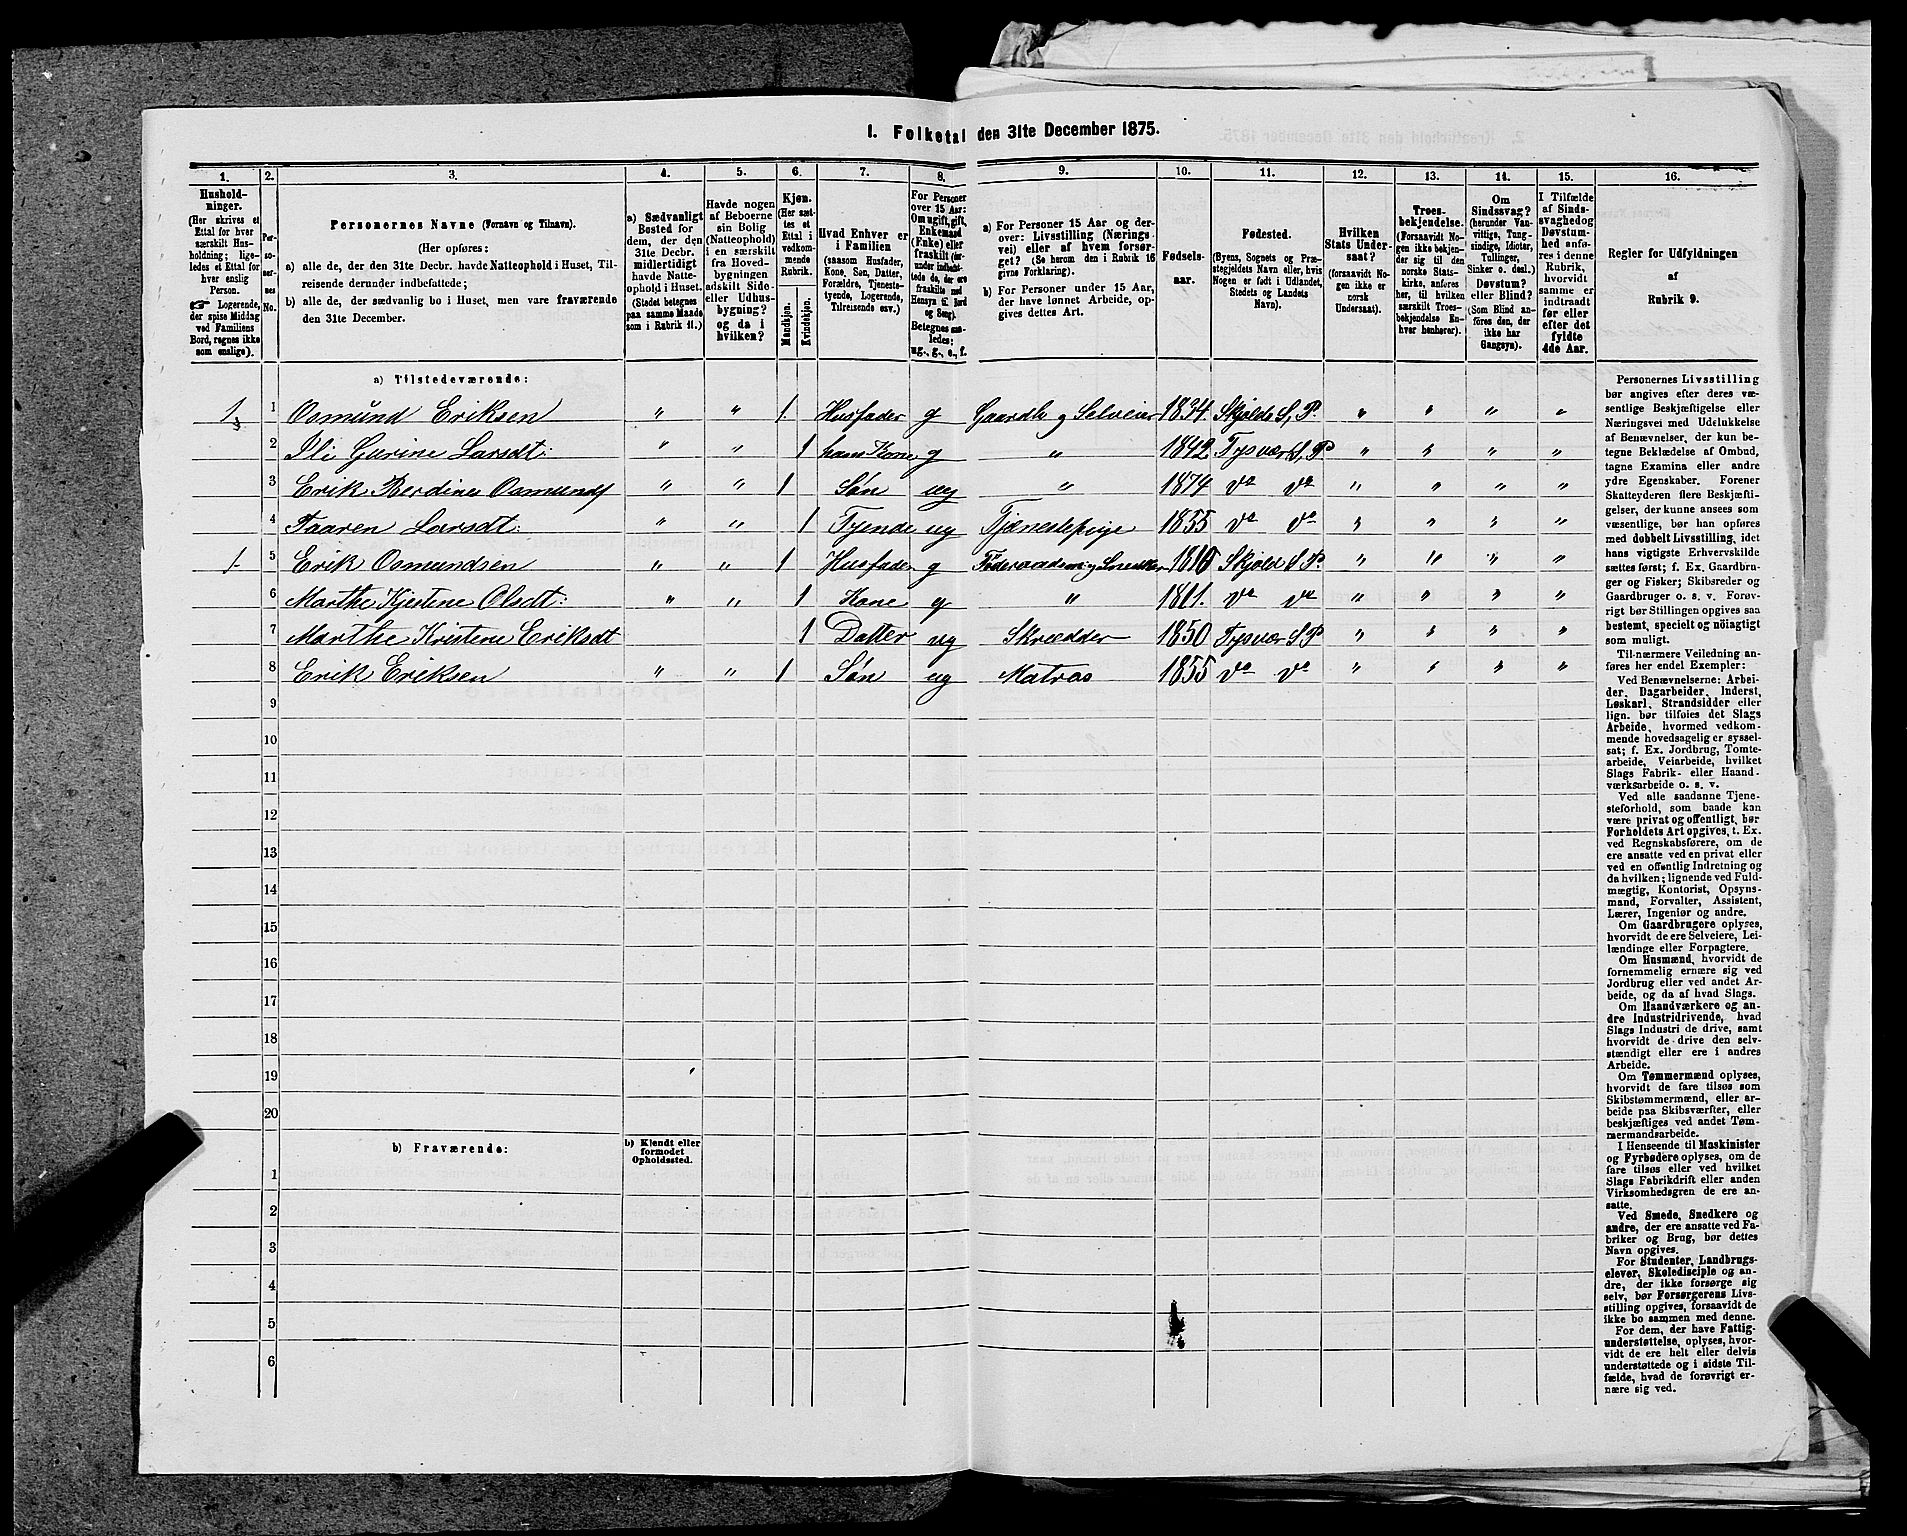 1. Folketal den 31te December 1875.
1. 2. 3. 4. 5. 6. 7. 8. 9. 10. 11. 12. 13. 14. 15. 16.
Hushold-
ninger.
(Her skrives et
Ettal for hver
særskilt Hus-
holdning; lige-
ledes et Ettal for
hver enslig
Person.
☞ Logerende,
der spise Middag
ved Familiens
Bord, regnes ikke
som enslige).
Per-
soner-
nes
No.
Personernes Navne (Fornavn og Tilnavn).
(Her opføres:
a) alle de, der den 31te Decbr. havde Natteophold i Huset, Til-
reisende derunder indbefattede;
b) alle de, der sædvanlig bo i Huset, men vare fraværende
den 31te December.
a) Sædvanligt
Bosted for
dem, der den
31te Decbr.
midlertidigt
havde Natte-
ophold i Huset.
(Stedet betegnes
paa samme Maade
som i Rubrik 11.)
Havde nogen
af Beboerne
sin Bolig
(Natteophold)
i en særskilt
fra Hoved-
bygningen
adskilt Side-
eller Udhus-
bygning?
og da i
hvilken?
Kjøn.
(Her sæt-
tes et
Ettal i
vedkom-
mende
Rubrik.
Mandkjøn.
Kvindekjøn.
Hvad Enhver er
i Familien
(saasom Husfader,
Kone, Søn, Datter,
Forældre, Tjeneste-
tyende, Logerende,
Tilreisende osv.)
For Personer
over 15 Aar:
Om ugift, gift,
Enkemand
(Enke) eller
fraskilt (der-
under indbefat-
tede de, der ere
fraskilte med
Hensyn til Bord
og Seng).
Betegnes saa-
ledes:
ug., g., e., f.
a) For Personer 15 Aar og der-
over: Livsstilling (Nærings-
vei) eller af hvem forsør-
get? (Se herom den i Rubrik 16
givne Forklaring).
b) For Personer under 15 Aar,
der have lønnet Arbeide, op-
gives dettes Art.
Fødsels-
aar.
Fødested.
(Byens, Sognets og Præ-
stegjeldets Navn eller, hvis
Nogen er født i Udlandet,
Stedets og Landets
Navn).
Hvilken
Stats Under-
saat?
(forsaavidt No-
gen ikke er
norsk
Undersaat).
Troes-
bekjendelse.
(Forsaavidt No-
gen ikke bekjen-
der sig til den
norske Stats-
kirke, anføres
her, til hvilken
særskilt Troes-
bekjendelse En-
hver henhører).
Om
Sindssvag?
(herunder Van-
vittige, Tung-
sindige, Idioter,
Tullinger,
Sinker o. desl.)
Døvstum?
eller Blind?
(Som Blind an-
føres den, der
ikke har
Gangsyn).
I Tilfælde
af Sinds-
svaghed og
Døvstum-
hed anfø-
res i denne
Rubrik,
hvorvidt
samme er
indtraadt
før eller
efter det
fyldte
4de Aar.
Regler for Udfyldningen
af
Rubrik 9.
a) Tilstedeværende:
1 1 Osmund Eriksen " " 1. Husfader g Gaardbr og Selveier 1834. Skjolde S, P. " " " "
2 Ili Gurine Larsdt: " " 1 hans Kone g " 1842 Tysvær S, P " " " "
3 Erik Berdines Osmunds " " 1 Søn ug " 1874 do do " " " "
4 Taaren Larsdt: " " 1 Tyende ug Tjenestepige 1855 do do " " " "
1 5 Erik Osmundsen " " 1 Husfader g Føderaadsm og Snedker 1810 Skjold S P. " " " "
6 Marthe Kjestene Olsdt: " " 1 Kone g " 1811. do do " " " "
7 Marthe Kristene Eriksdt 1 Datter ug Skrædder 1850 Tysvær S P " " " "
8 Erik Eriksen " " 1 Søn ug Matros 1855 do do " " " "
9
10
11
12
13
14
15
16
17
18
19
20
b) Fraværende:
b) Kjendt eller
formodet
Opholdssted.
1
2
3
4
5
6
Personernes Livsstilling
bør angives efter deres væ-
sentlige Beskjæftigelse eller
Næringsvei med Udelukkelse
af Benævnelser, der kun be-
tegne Beklædelse af Ombud,
tagne Examina eller andre
ydre Egenskaber. Forener
Skatteyderen flere Beskjæfti-
gelser, der kunne ansees som
væsentlige, bør han opføres
med dobbelt Livsstilling, idet
hans vigtigste Erhvervskilde
sættes først; f. Ex. Gaardbru-
ger og Fisker; Skibsreder og
Gaardbruger o. s. v. Forøv-
rigt bør Stillingen opgives saa
bestemt, specielt og nöiagtigt
som muligt.
Til nærmere Veiledning an-
føres her endel Exempler:
Ved Benævnelserne: Arbei-
der, Dagarbeider, Inderst,
Løskarl, Strandsidder eller
lign. bør tilføies det Slags
Arbeide, hvormed vedkom-
mende hovedsagelig er syssel-
sat; f. Ex. Jordbrug, Tomte-
arbeide, Veiarbeide, hvilket
Slags Fabrik- eller Haand-
værksarbeide o. s. v.
Ved alle saadanne Tjene-
steforhold, som baade kan
være privat og offentligt, bør
Forholdets Art opgives, t. Ex.
ved Regnskabsførere, om de
ere ansatte ved en privat eller
ved en offentlig Indretning og
da hvilken; lignende ved Fuld-
mægtig, Kontorist, Opsyns-
mand, Forvalter, Assistent,
Lærer, Ingeniør og andre.
Om Gaardbrugere oplyses,
hvorvidt de ere Selveiere, Lei-
lændinge eller Forpagtere.
Om Husmænd, hvorvidt de
fornemmelig ernære sig ved
Jordbrug eller ved andet Ar-
beide, og da af hvad Slags.
Om Haandværkere og an-
dre Industridrivende, hvad
Slags Industri de drive, samt
hvorvidt de drive den selv-
stændigt eller ere i andres
Arbeide.
Om Tømmermænd oplyses,
hvorvidt de fare tilsøs som
Skibstømmermænd, eller ar-
beide paa Skibsværfter, eller
beskjæftiges ved andet Tøm-
mermandsarbeide.
I Henseende til Maskinister
og Fyrbødere oplyses, om de
fare tilsøs eller ved hvilket
Slags Fabrikdrift eller anden
Virksomhedsgren de ere an-
satte.
Ved Smede, Snedkere og
andre, der ere ansatte ved Fa-
briker og Brug, bør dettes
Navn opgives.
For Studenter, Landbrugs-
elever, Skoledisciple og an-
dre, der ikke forsørge sig
selv, bør Forsørgerens Livs-
stilling opgives, forsaavidt de
ikke bo sammen med denne.
For dem, der have Fattig-
understøttelse, oplyses, hvor-
vidt de ere helt eller delvis
understøttede og i sidste Til-
fælde, hvad de forøvrigt er-
nære sig ved.